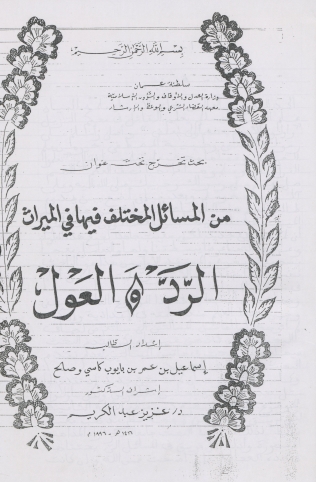 بسم الله الرحمن الرحيم
سلطنة عمان
وزارة العدل والأوقاف والشؤون الإسلامية
معهد القضاء الشرعي والوعظ والإرشاد
بحث تخرج تحت عنوان
من المسائل المختلف فيها في الميراث
الردّ و العول
إعداد الطالب
إسماعيل بن عمر بن بايوب كاسي وصالح
إشراف الدكتور
د/ عزيز عبد الكريم
١٤١٦ هـ - ١٩٩٦ م